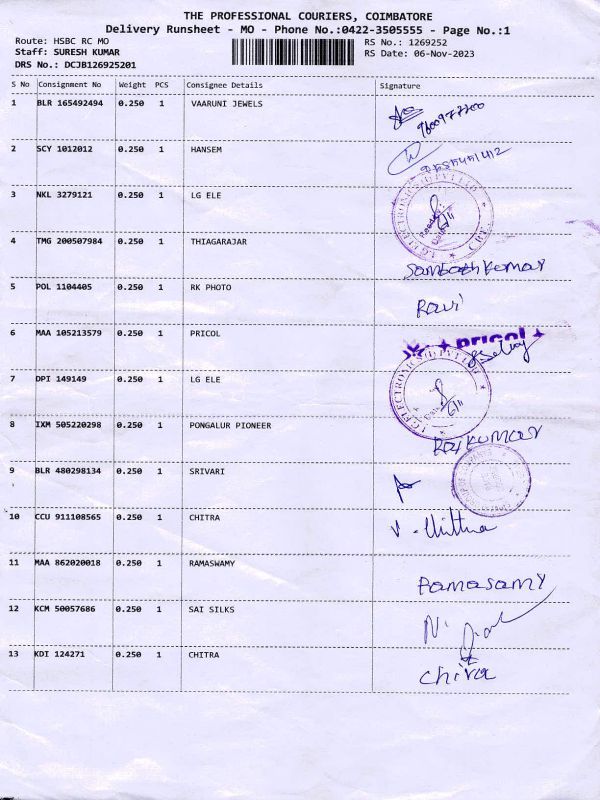 THE PROFESSIONAL COURIERS, COIMBATORE
Delivery Runsheet - MO - Phone No.:0422-3505555 - Page No.:1
Route: HSBC RC MO RS No.: 1269252
Staff: SURESH KUMAR RS Date: 06-Nov-2023
DRS No.: DCJB126925201
S No Consignment No Weight PCS Consignee Details Signature
1 BLR 165492494 0.250 1 VAARUNI JEWELS
9600977200
2 SCY 1012012 0.250 1 HANSEM
3 NKL 3279121 0.250 1 LG ELE
LG ELECTRONICS (I) PVT LTD CBE
4 TMG 200507984 0.250 1 THIAGARAJAR
Sambathkumar
5 POL 1104405 0.250 1 RK PHOTO
Ravi
6 MAA 105213579 0.250 1 PRICOL
pricol
7 DPI 149149 0.250 1 LG ELE
LG ELECTRONICS (I) PVT LTD
8 IXM 505220298 0.250 1 PONGALUR PIONEER
Rajkumar
9 BLR 480298134 0.250 1 SRIVARI
10 CCU 911108565 0.250 1 CHITRA
11 MAA 862020018 0.250 1 RAMASWAMY
Ramasamy
12 KCM 50057686 0.250 1 SAI SILKS
13 KDI 124271 0.250 1 CHITRA
Chitra